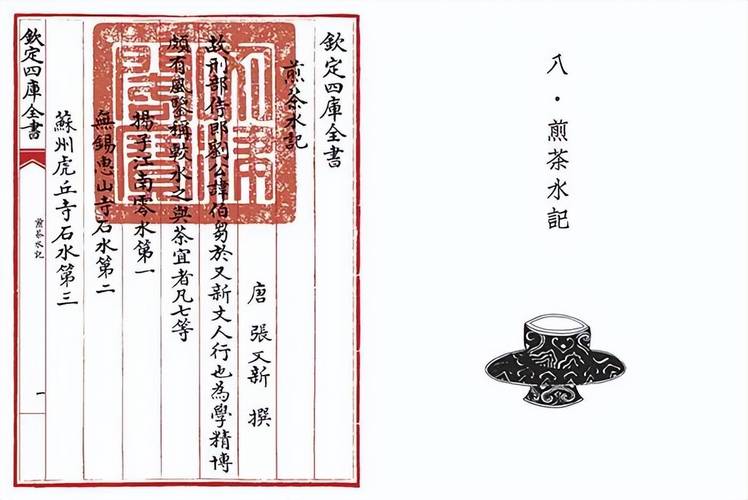 八・煎茶水記
欽定四庫全書
煎茶水記
唐 張又新 撰
故刑部侍郎劉公諱伯芻於又新丈人行也為學精博
頗有風鑒稱較水之與茶宜者凡七等
揚子江南零水第一
無錫惠山寺石水第二
蘇州虎丘寺石水第三
欽定四庫全書
煎茶水記
一